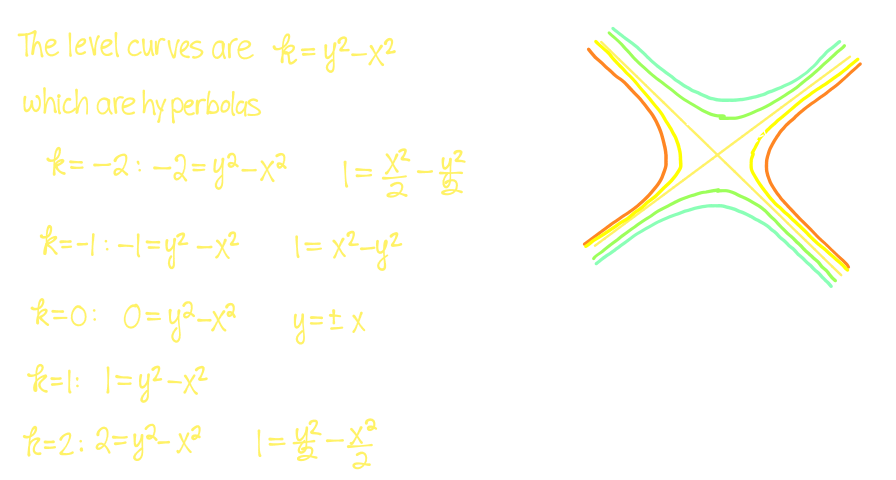 The level curves are k = y² - x²
which are hyperbolas
k = -2 : -2 = y² - x² 1 = x²/2 - y²/2
k = -1 : -1 = y² - x² 1 = x² - y²
k = 0 : 0 = y² - x² y = ± x
k = 1 : 1 = y² - x²
k = 2 : 2 = y² - x² 1 = y²/2 - x²/2